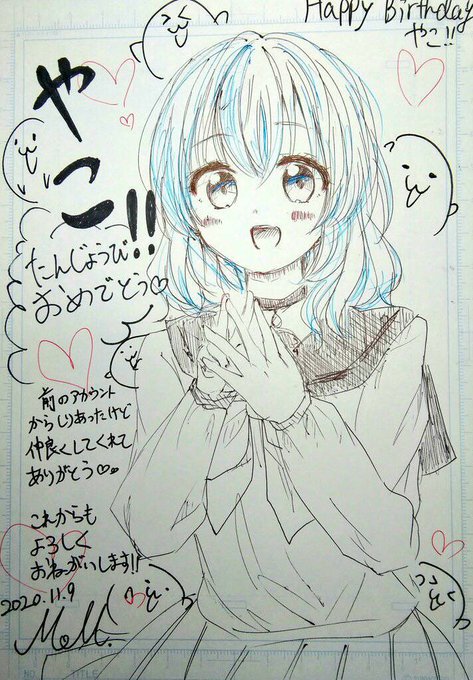 Happy Birthday
やこ!!
やこ!!
たんじょうび
おめでとう♡
前のアカウント
からしりあったけど
仲良くしてくれて
ありがとう♡。
これからも
よろしく
おねがいします!!
2020.11.9
NO.
TITLE